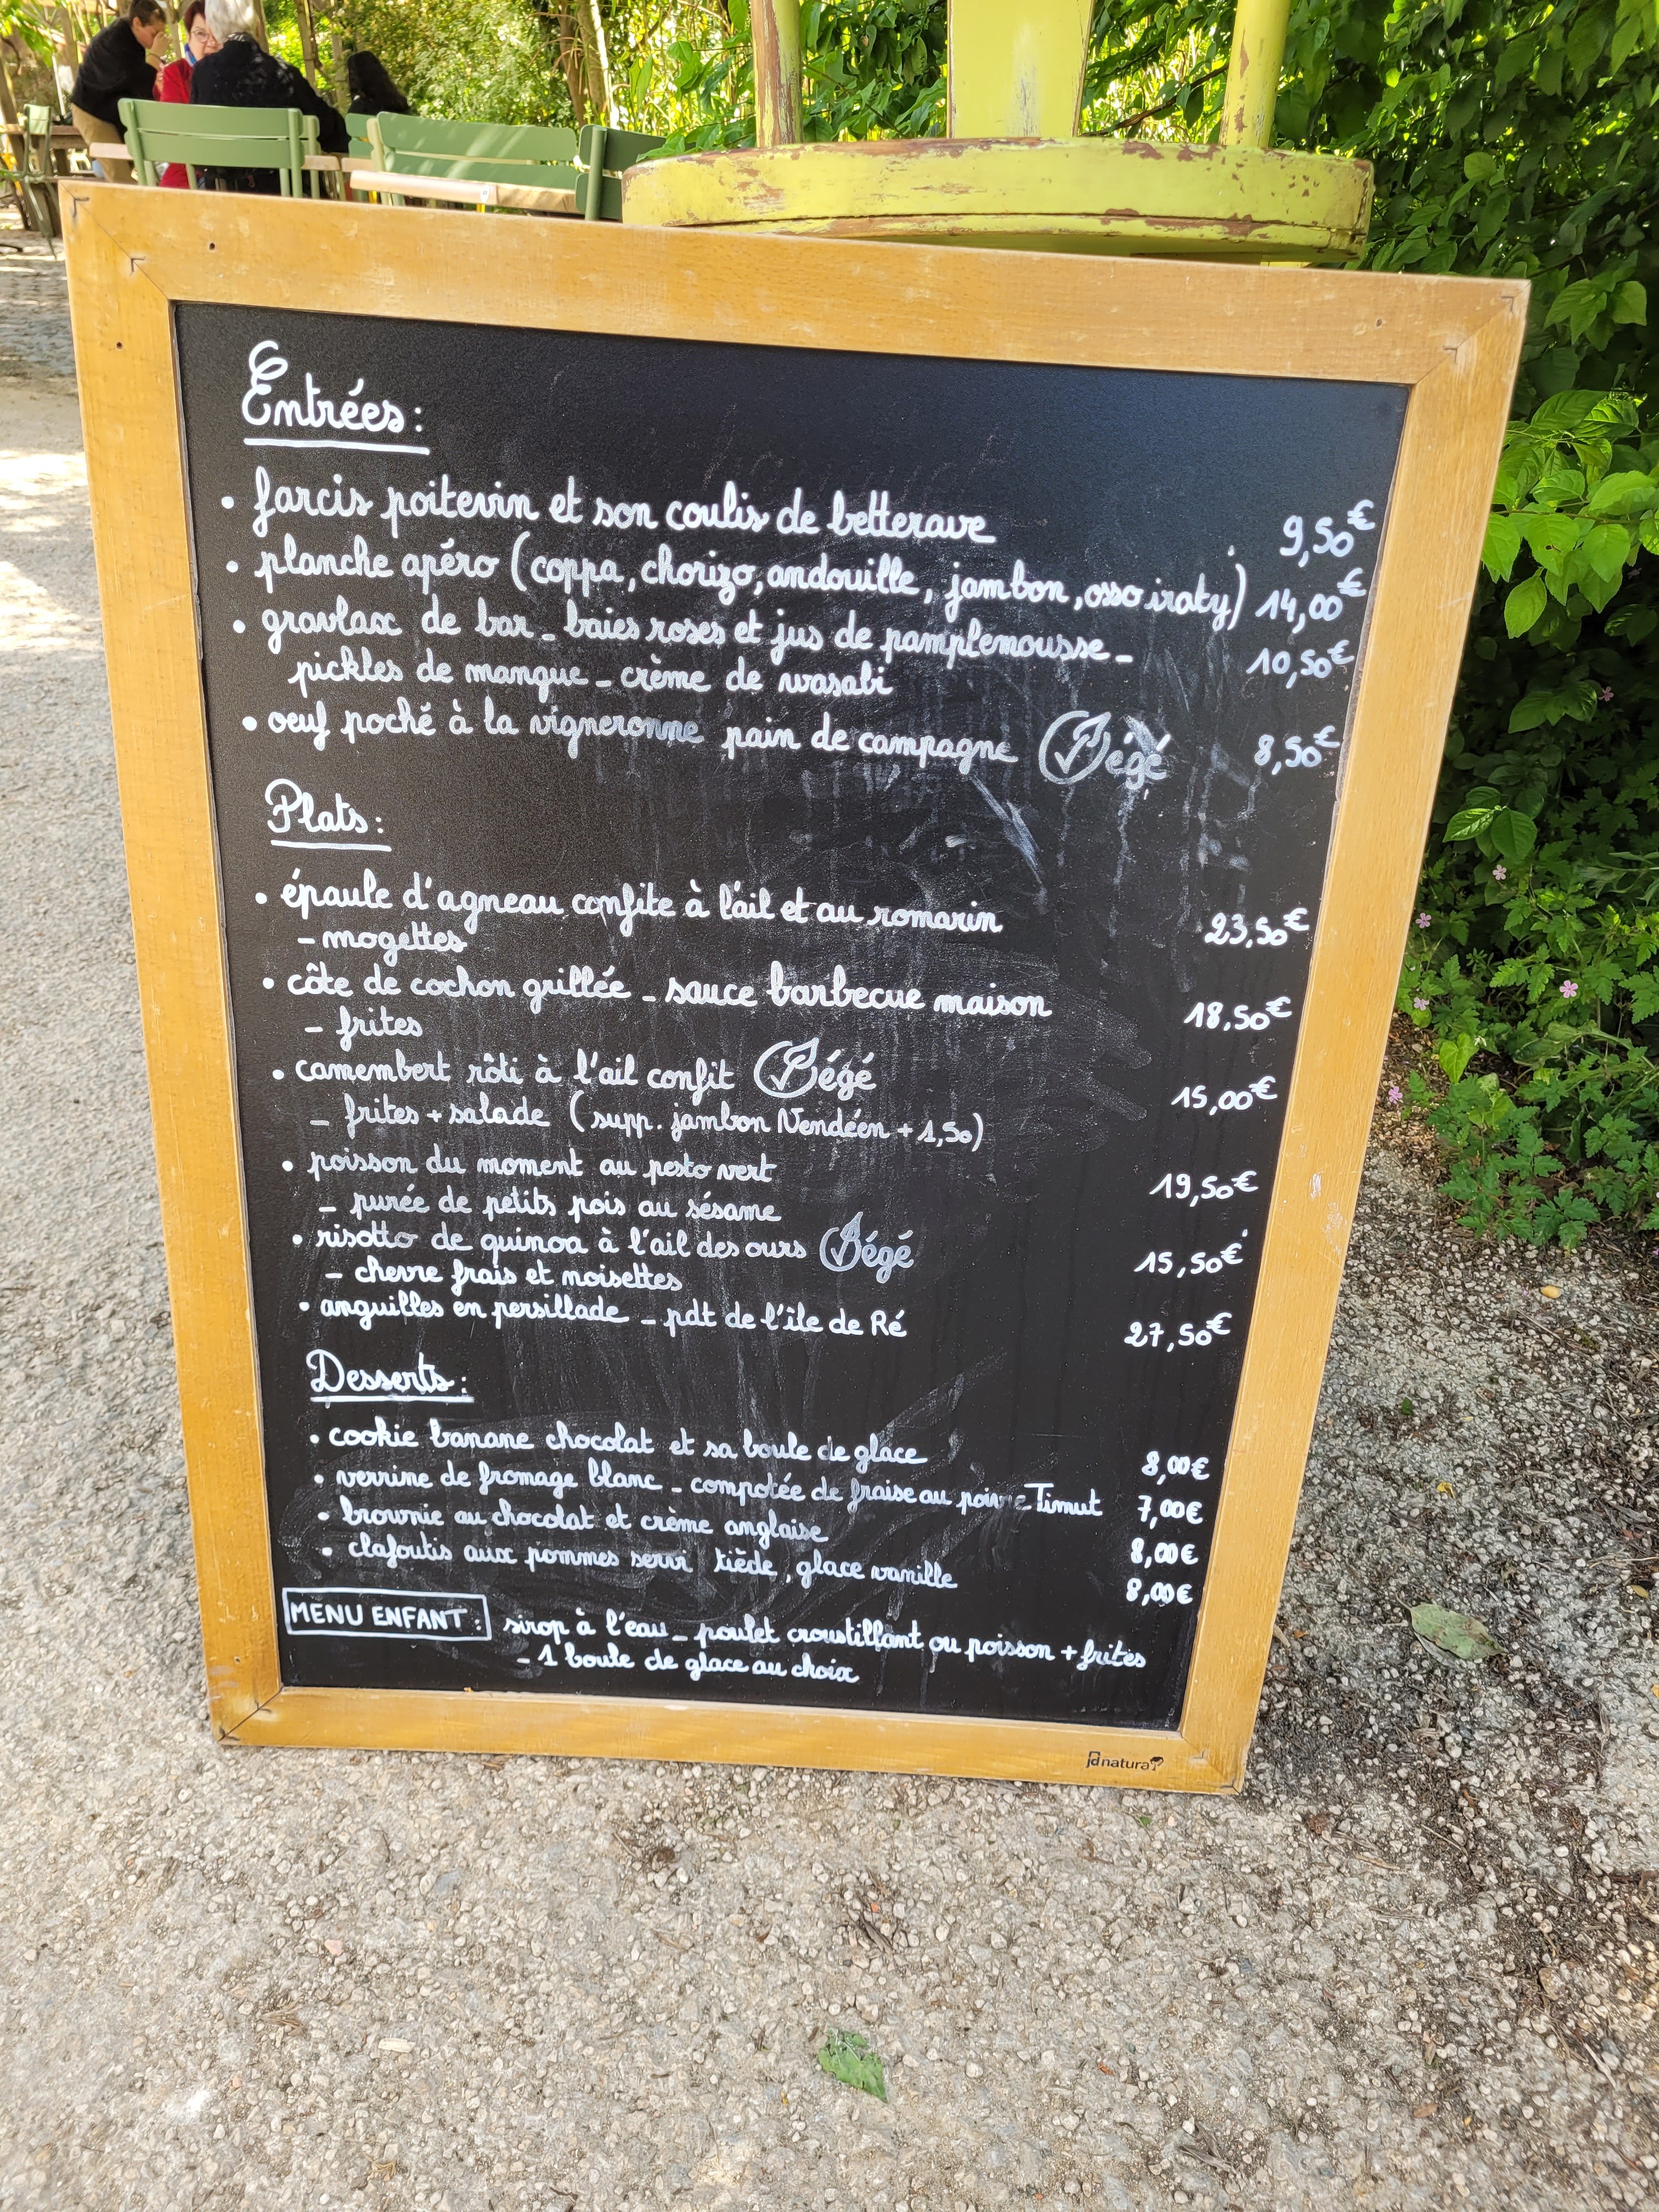 Entrées:
• farcis poitevin et son coulis de betterave 9,50€
• planche apéro (coppa, chorizo, andouille, jambon, osso iraty) 14,00€
• gravlax de bar - baies roses et jus de pamplemousse - 10,50€
pickles de mangue - crème de wasabi
• oeuf poché à la vigneronne pain de campagne Végé 8,50€
Plats:
• épaule d'agneau confite à l'ail et au romarin 23,50€
- mogettes
• côte de cochon grillée - sauce barbecue maison 18,50€
- frites
• camembert rôti à l'ail confit Végé 15,00€
- frites + salade (supp. jambon Vendéen + 1,50)
• poisson du moment au pesto vert 19,50€
- purée de petits pois au sésame
• risotto de quinoa à l'ail des ours Végé 15,50€
- chevre frais et noisettes
• anguilles en persillade - pdt de l'île de Ré 27,50€
Desserts:
• cookie banane chocolat et sa boule de glace 8,00€
• verrine de fromage blanc - compotée de fraise au poivre Timut 7,00€
• brownie au chocolat et crème anglaise 8,00€
• clafoutis aux pommes servi tiède, glace vanille 8,00€
MENU ENFANT: sirop à l'eau - poulet croustillant ou poisson + frites
- 1 boule de glace au choix
jdnatura